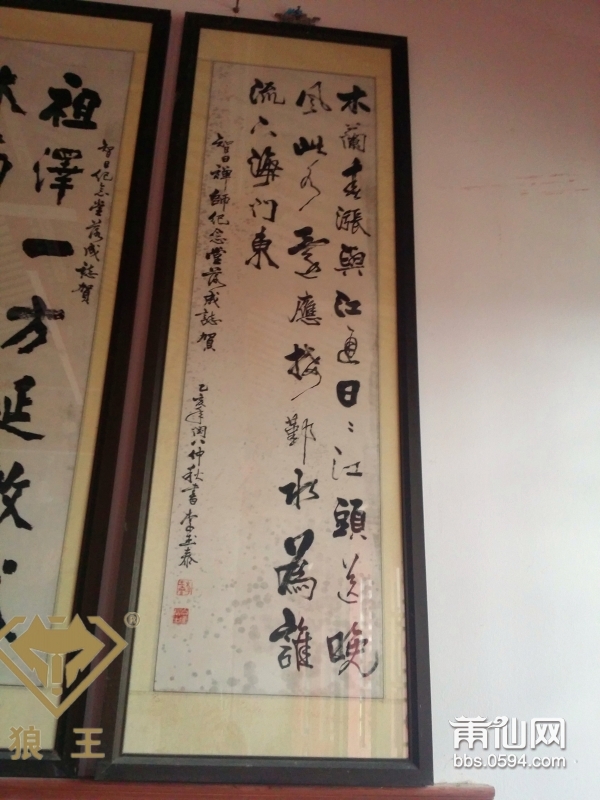 木蘭春漲與江通日〻江頭送晚
風此水還應接鄞水爲誰
流下海门東
智日禪師纪念堂落成誌賀
乙亥年闰八仲秋書李玉泰
智日纪念堂落成誌賀
祖澤一方延
狼王
®
莆仙网
bbs.0594.com